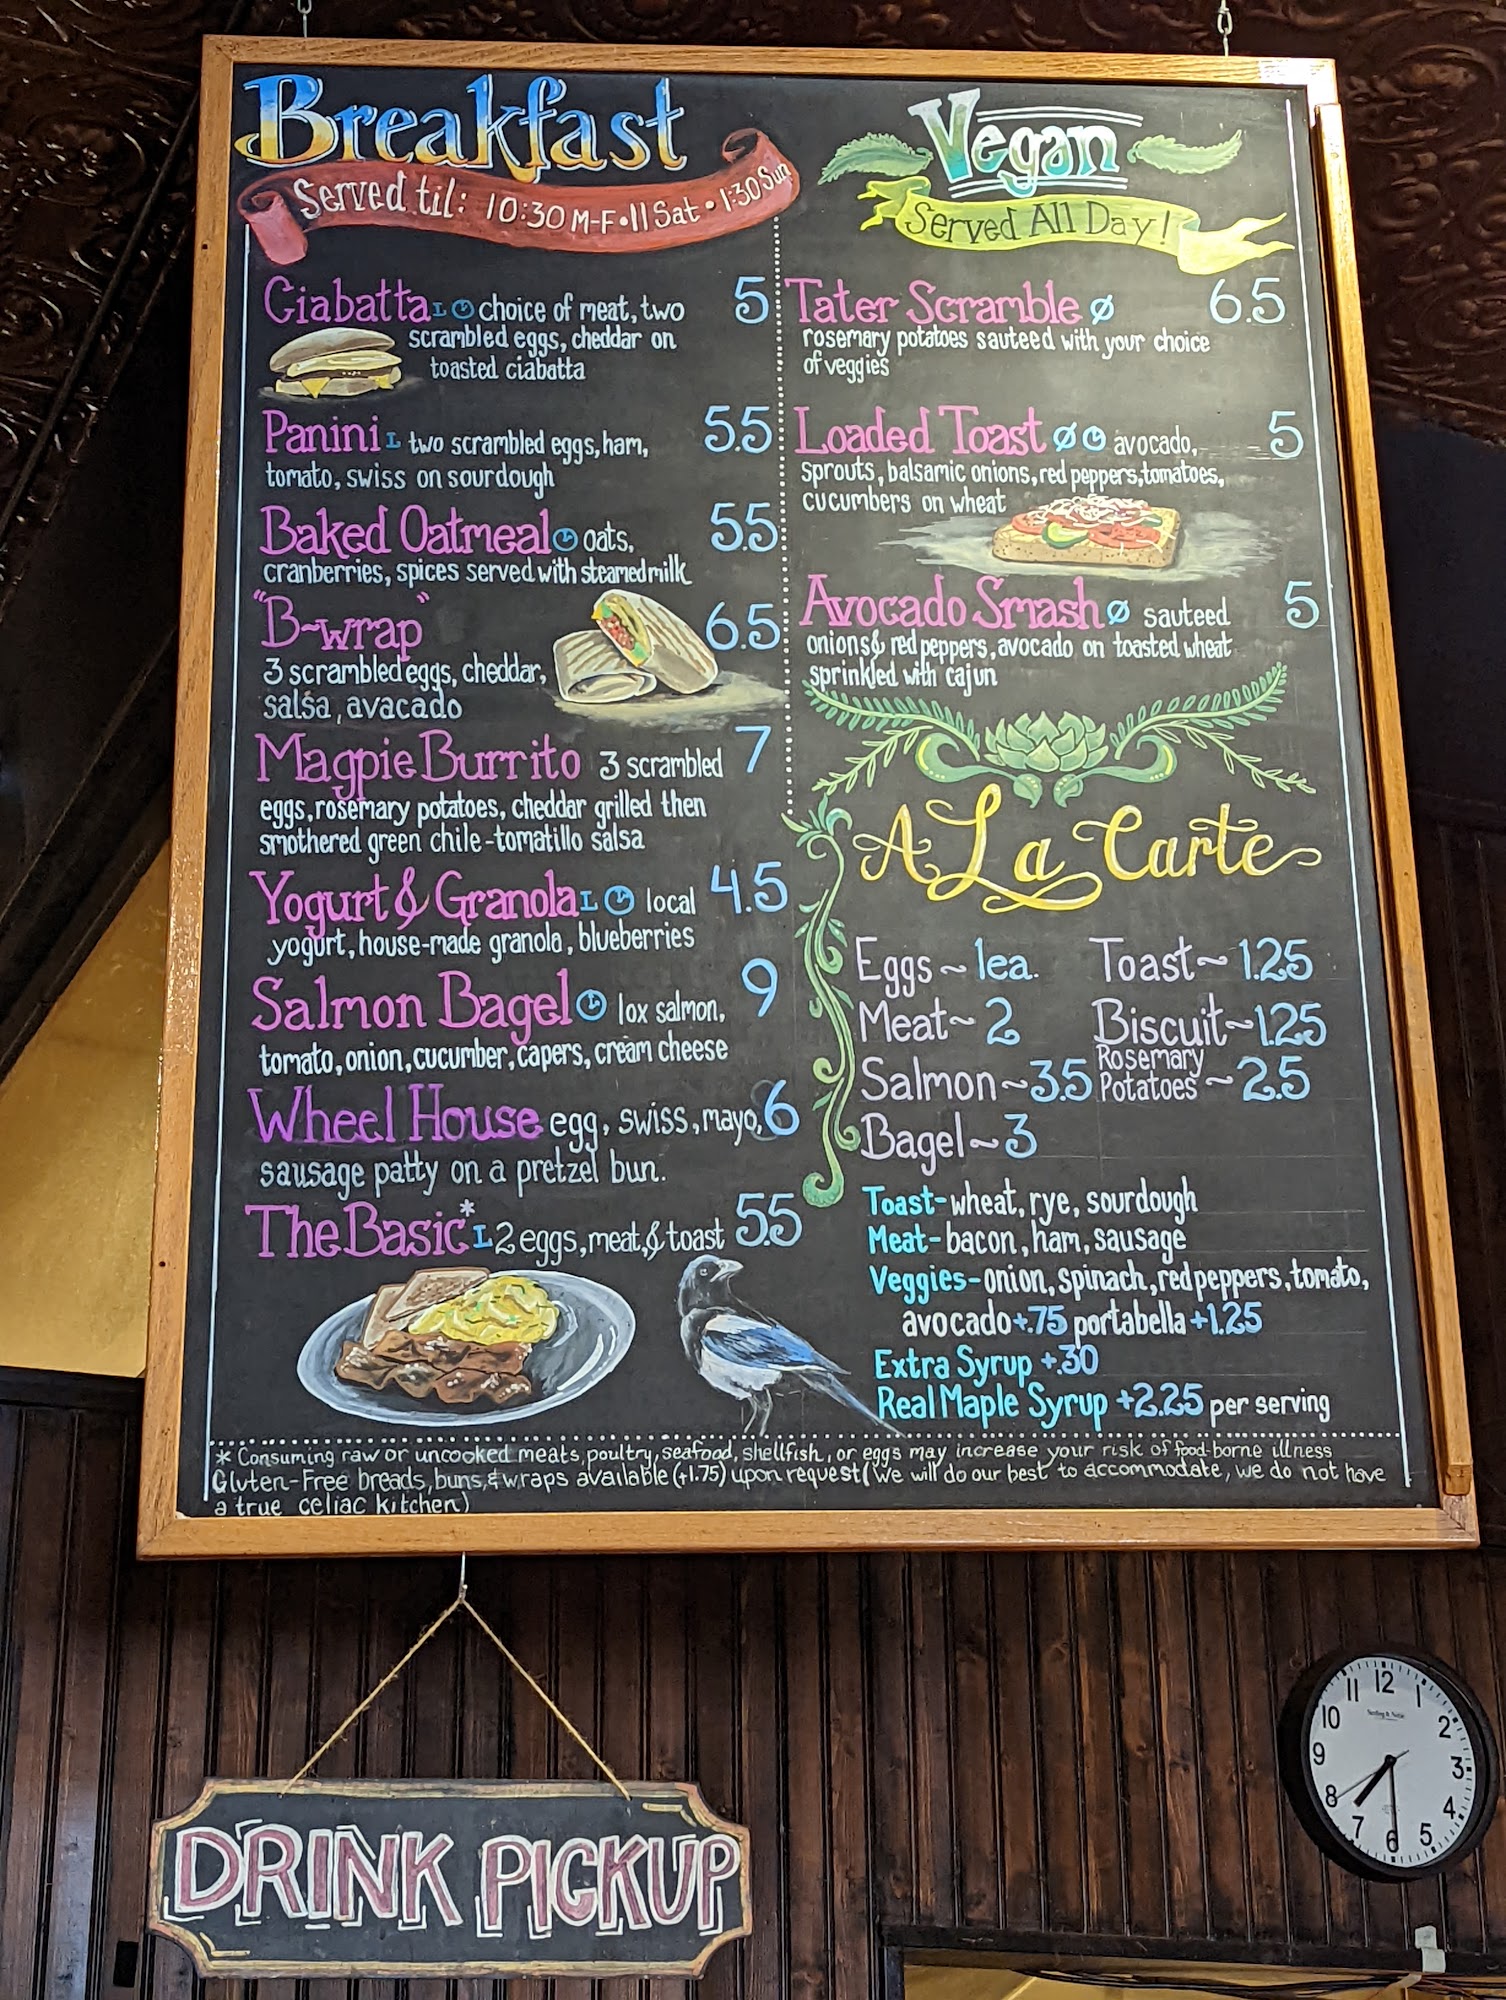 Breakfast
Served til: 10:30 M-F • 11 Sat • 1:30 Sun
Ciabatta L choice of meat, two 5
scrambled eggs, cheddar on
toasted ciabatta
Panini L two scrambled eggs, ham, 5.5
tomato, swiss on sourdough
Baked Oatmeal oats, 5.5
cranberries, spices served with steamed milk
"B-wrap" 6.5
3 scrambled eggs, cheddar,
salsa, avacado
Magpie Burrito 3 scrambled 7
eggs, rosemary potatoes, cheddar grilled then
smothered green chile-tomatillo salsa
Yogurt & Granola L local 4.5
yogurt, house-made granola, blueberries
Salmon Bagel lox salmon, 9
tomato, onion, cucumber, capers, cream cheese
Wheel House egg, swiss, mayo, 6
sausage patty on a pretzel bun.
The Basic* L 2 eggs, meat, & toast 5.5
Vegan
Served All Day!
Tater Scramble Ø 6.5
rosemary potatoes sauteed with your choice
of veggies
Loaded Toast Ø avocado, 5
sprouts, balsamic onions, red peppers, tomatoes,
cucumbers on wheat
Avocado Smash Ø sauteed 5
onions & red peppers, avocado on toasted wheat
sprinkled with cajun
A La Carte
Eggs ~ 1ea. Toast ~ 1.25
Meat ~ 2 Biscuit ~ 1.25
Salmon ~ 3.5 Rosemary
Potatoes ~ 2.5
Bagel ~ 3
Toast - wheat, rye, sourdough
Meat - bacon, ham, sausage
Veggies - onion, spinach, red peppers, tomato,
avocado +.75 portabella +1.25
Extra Syrup +.30
Real Maple Syrup +2.25 per serving
* Consuming raw or uncooked meats, poultry, seafood, shellfish, or eggs may increase your risk of food-borne illness
Gluten-Free breads, buns, & wraps available (+1.75) upon request (we will do our best to accommodate, we do not have
a true celiac kitchen)
DRINK PICKUP
12
1
2
3
4
5
6
7
8
9
10
11